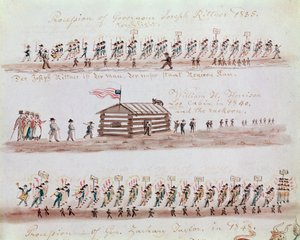 Procession of Governor Joseph Ritner 1835.
Der Joseph Ritner is der man, der unser Staat
William H. Harrison
Log Cabin in 1840.
and the rackoon.
Procession of Gen. Zachary Taylor, in 1848.